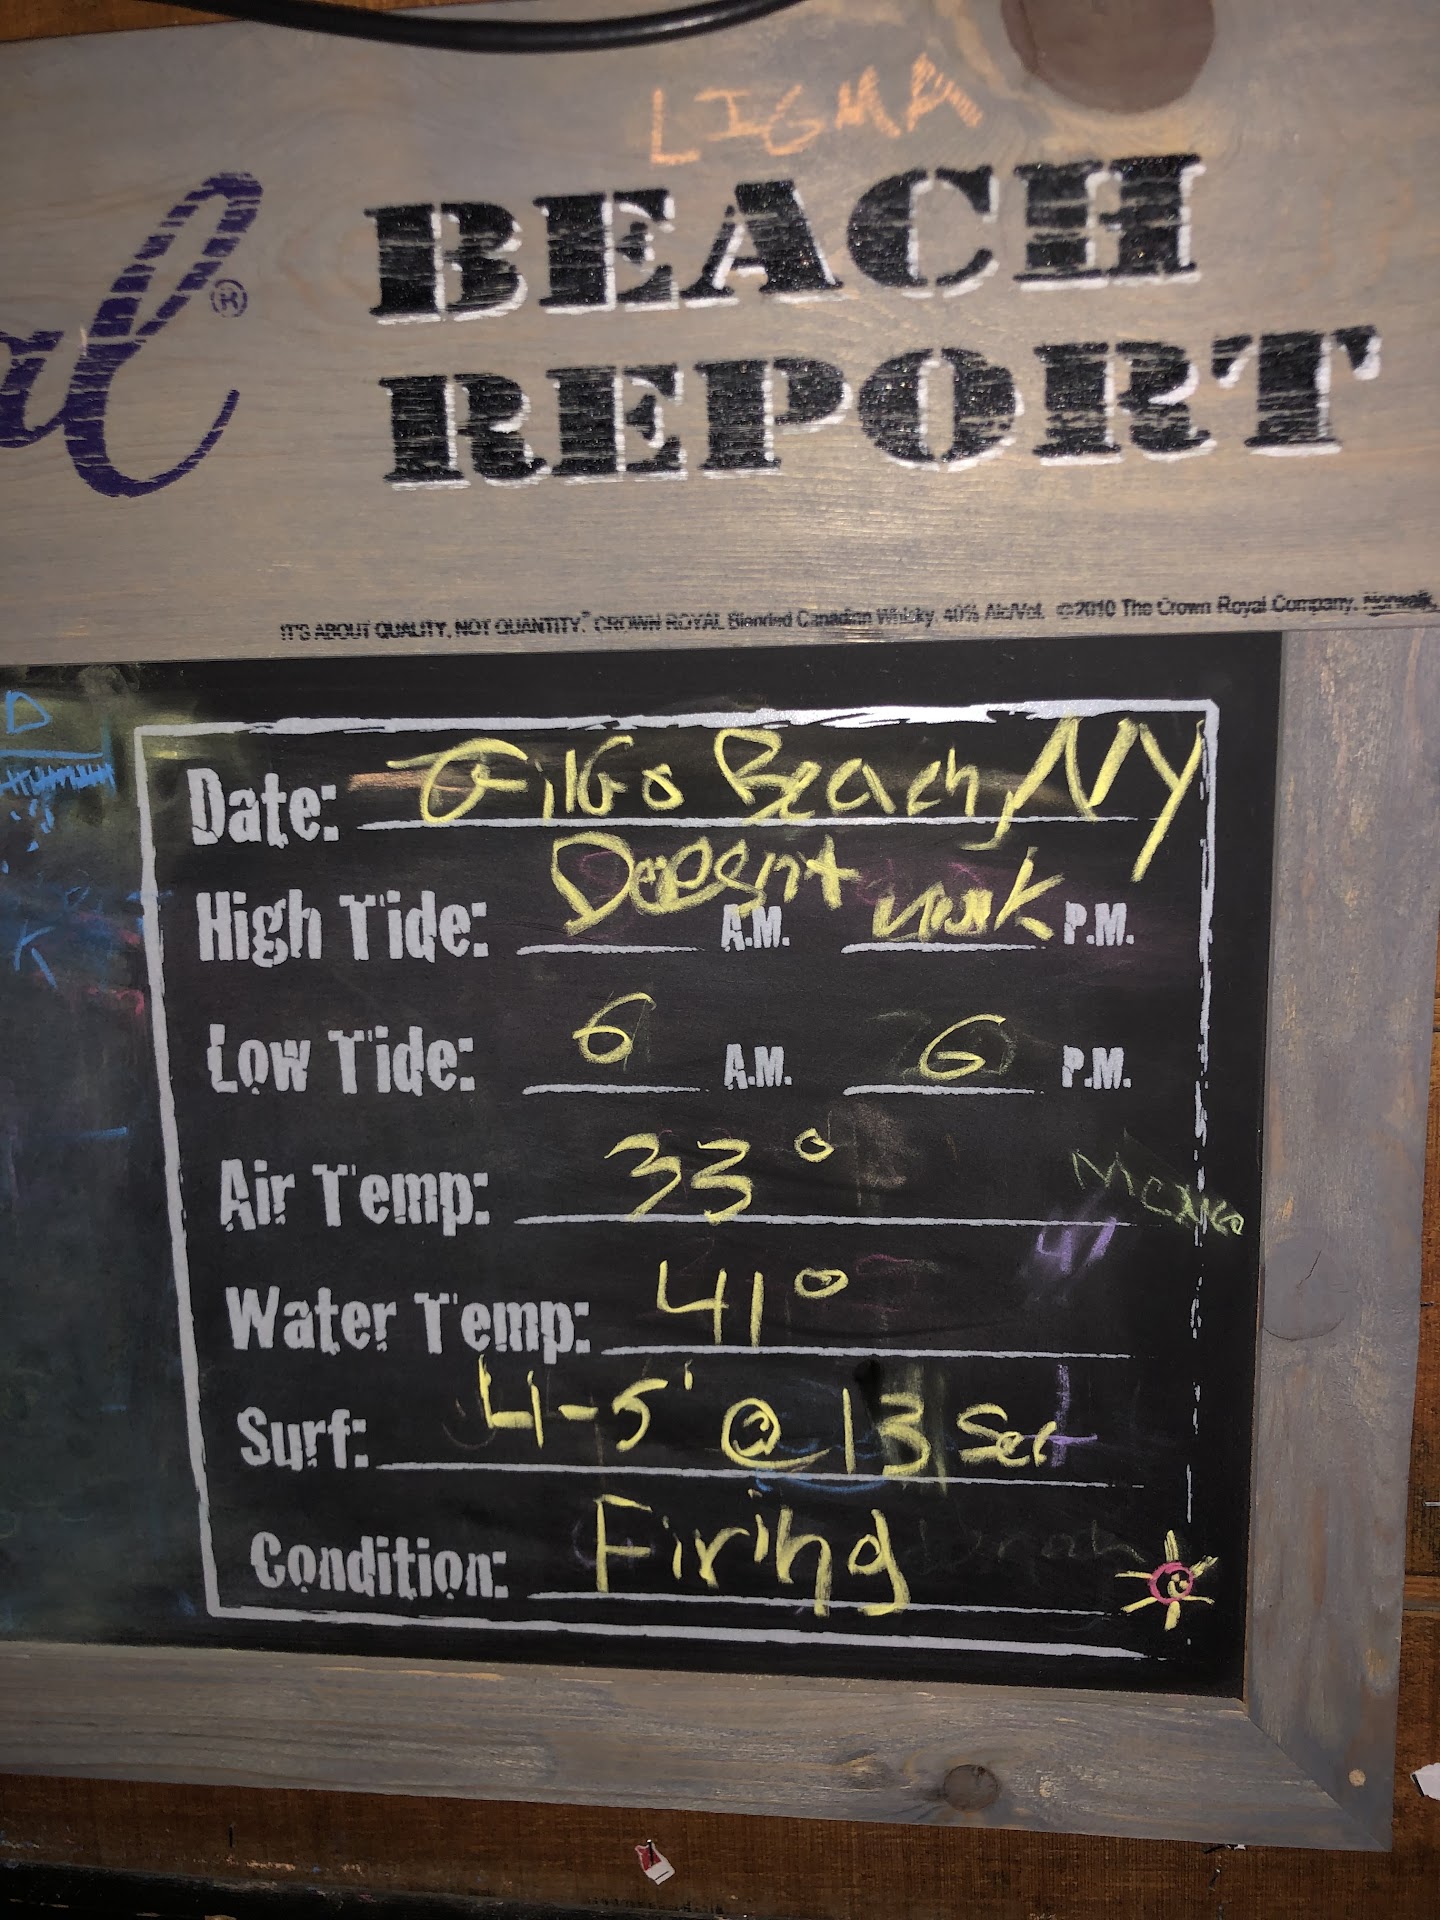 LIGMA
al® BEACH
REPORT
IT'S ABOUT QUALITY, NOT QUANTITY.® CROWN ROYAL Blended Canadian Whisky. 40% Alc/Vol. ©2010 The Crown Royal Company, Norwalk,
D
Date: GilGo Beach, NY
Doesnt work
High Tide: A.M. P.M.
K
Low Tide: 6 A.M. 6 P.M.
Air Temp: 33°
Mexico
47
Water Temp: 41°
Surf: 4-5' @ 13 Sec
Condition: Firing